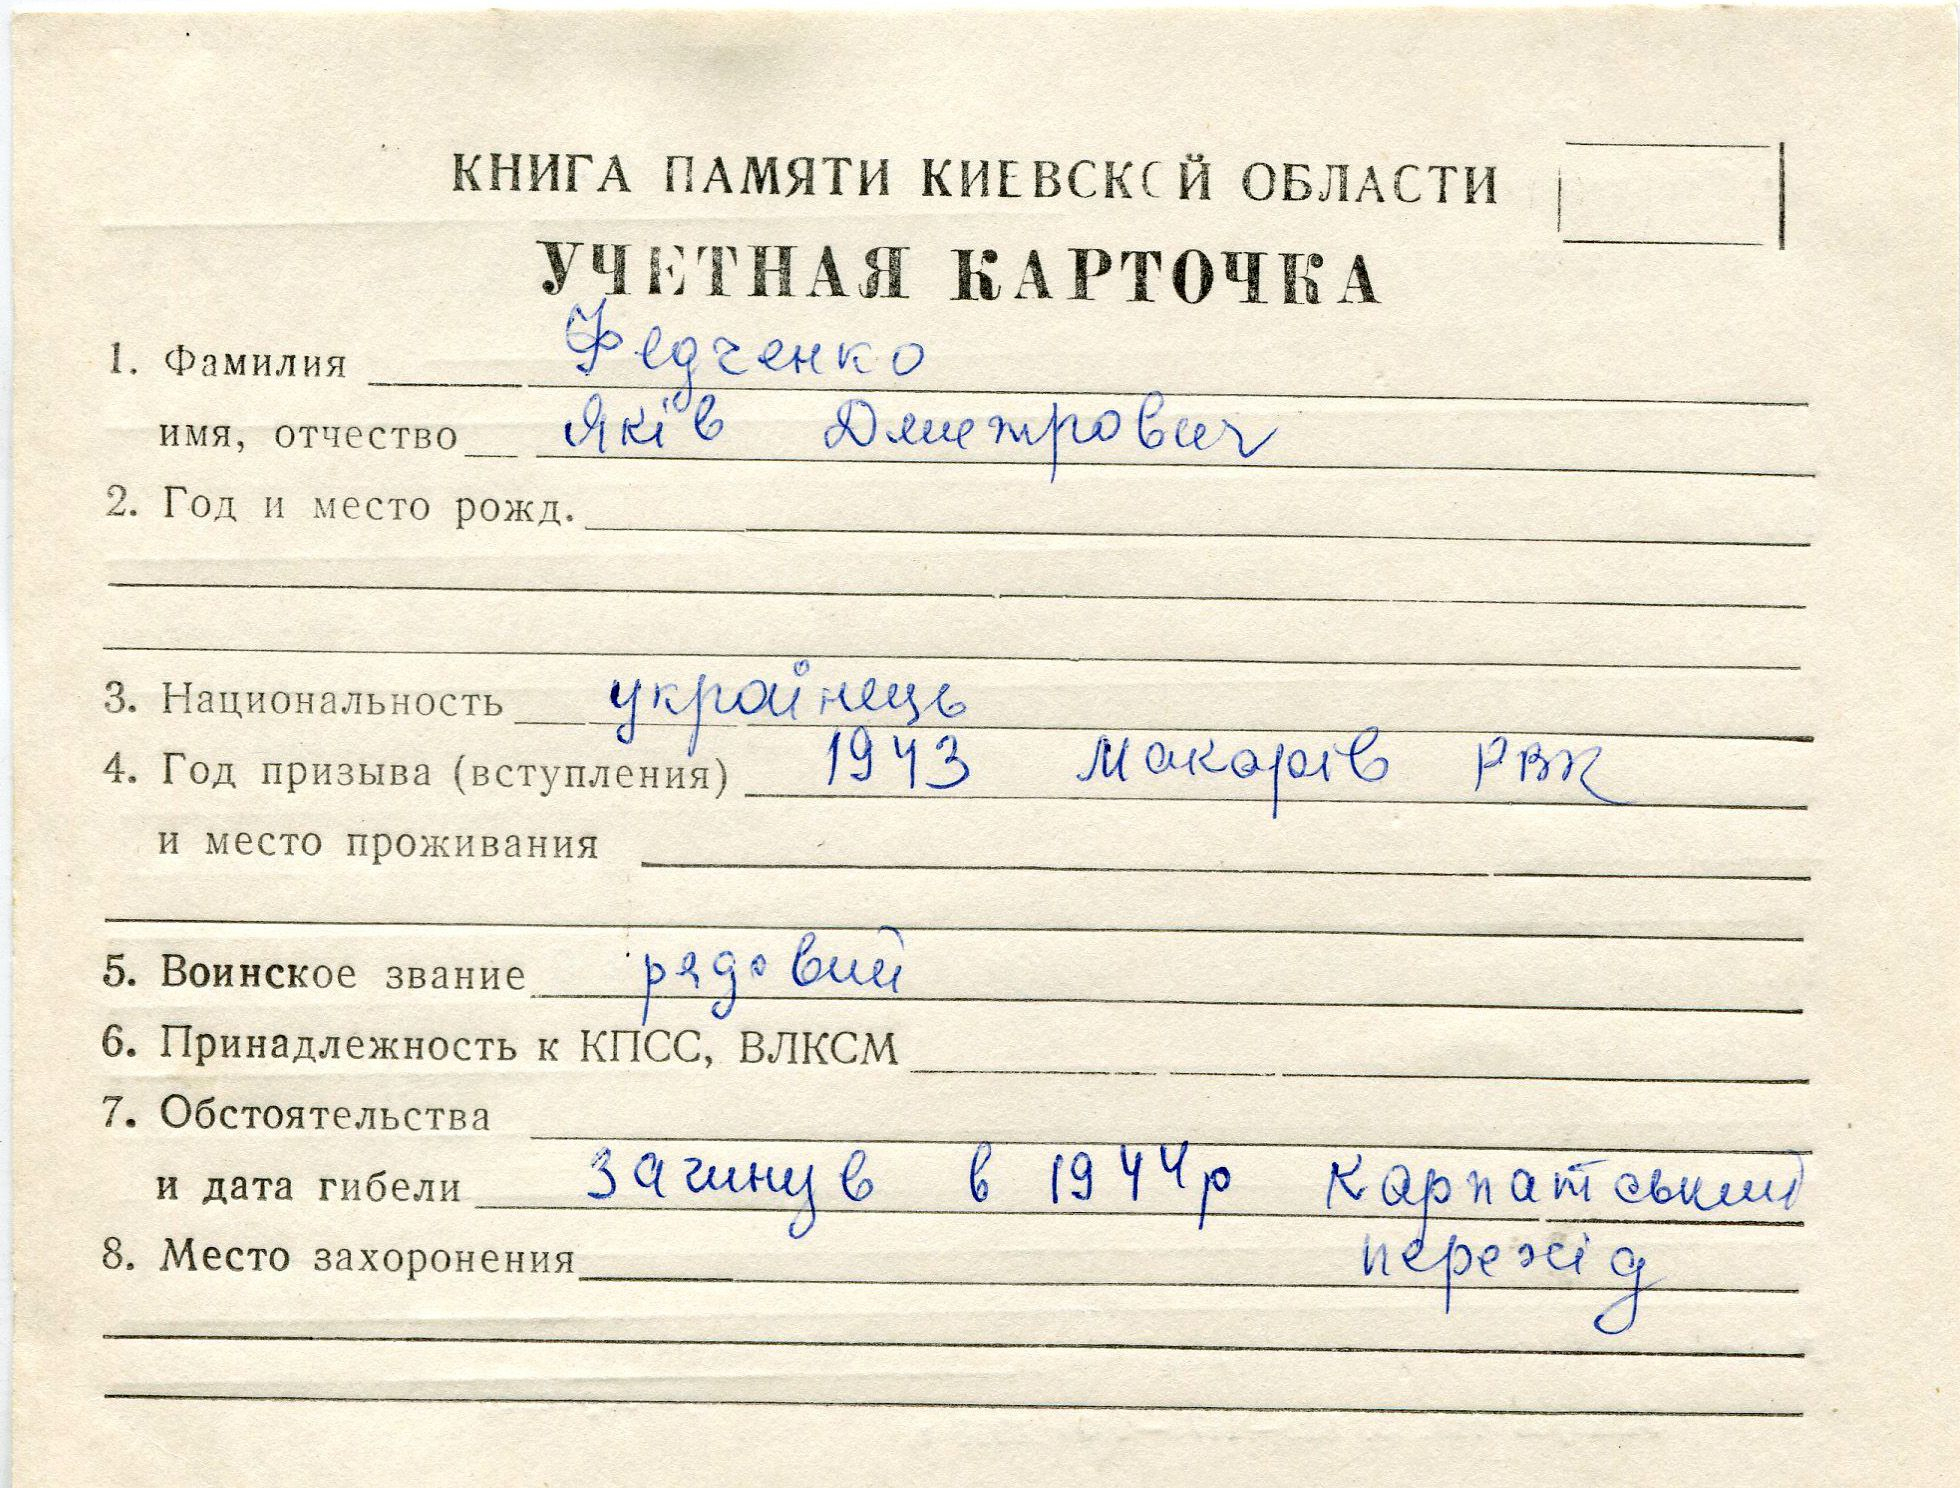 КНИГА ПАМЯТИ КИЕВСКОЙ ОБЛАСТИ
УЧЕТНАЯ КАРТОЧКА
1. Фамилия Федченко
имя, отчество Яків Дмитрович
2. Год и место рожд.
3. Национальность українець
4. Год призыва (вступления) 1943 Макарів РВК
и место проживания
5. Воинское звание рядовий
6. Принадлежность к КПСС, ВЛКСМ
7. Обстоятельства
и дата гибели Загинув в 1944р Карпатський
8. Место захоронения перехід